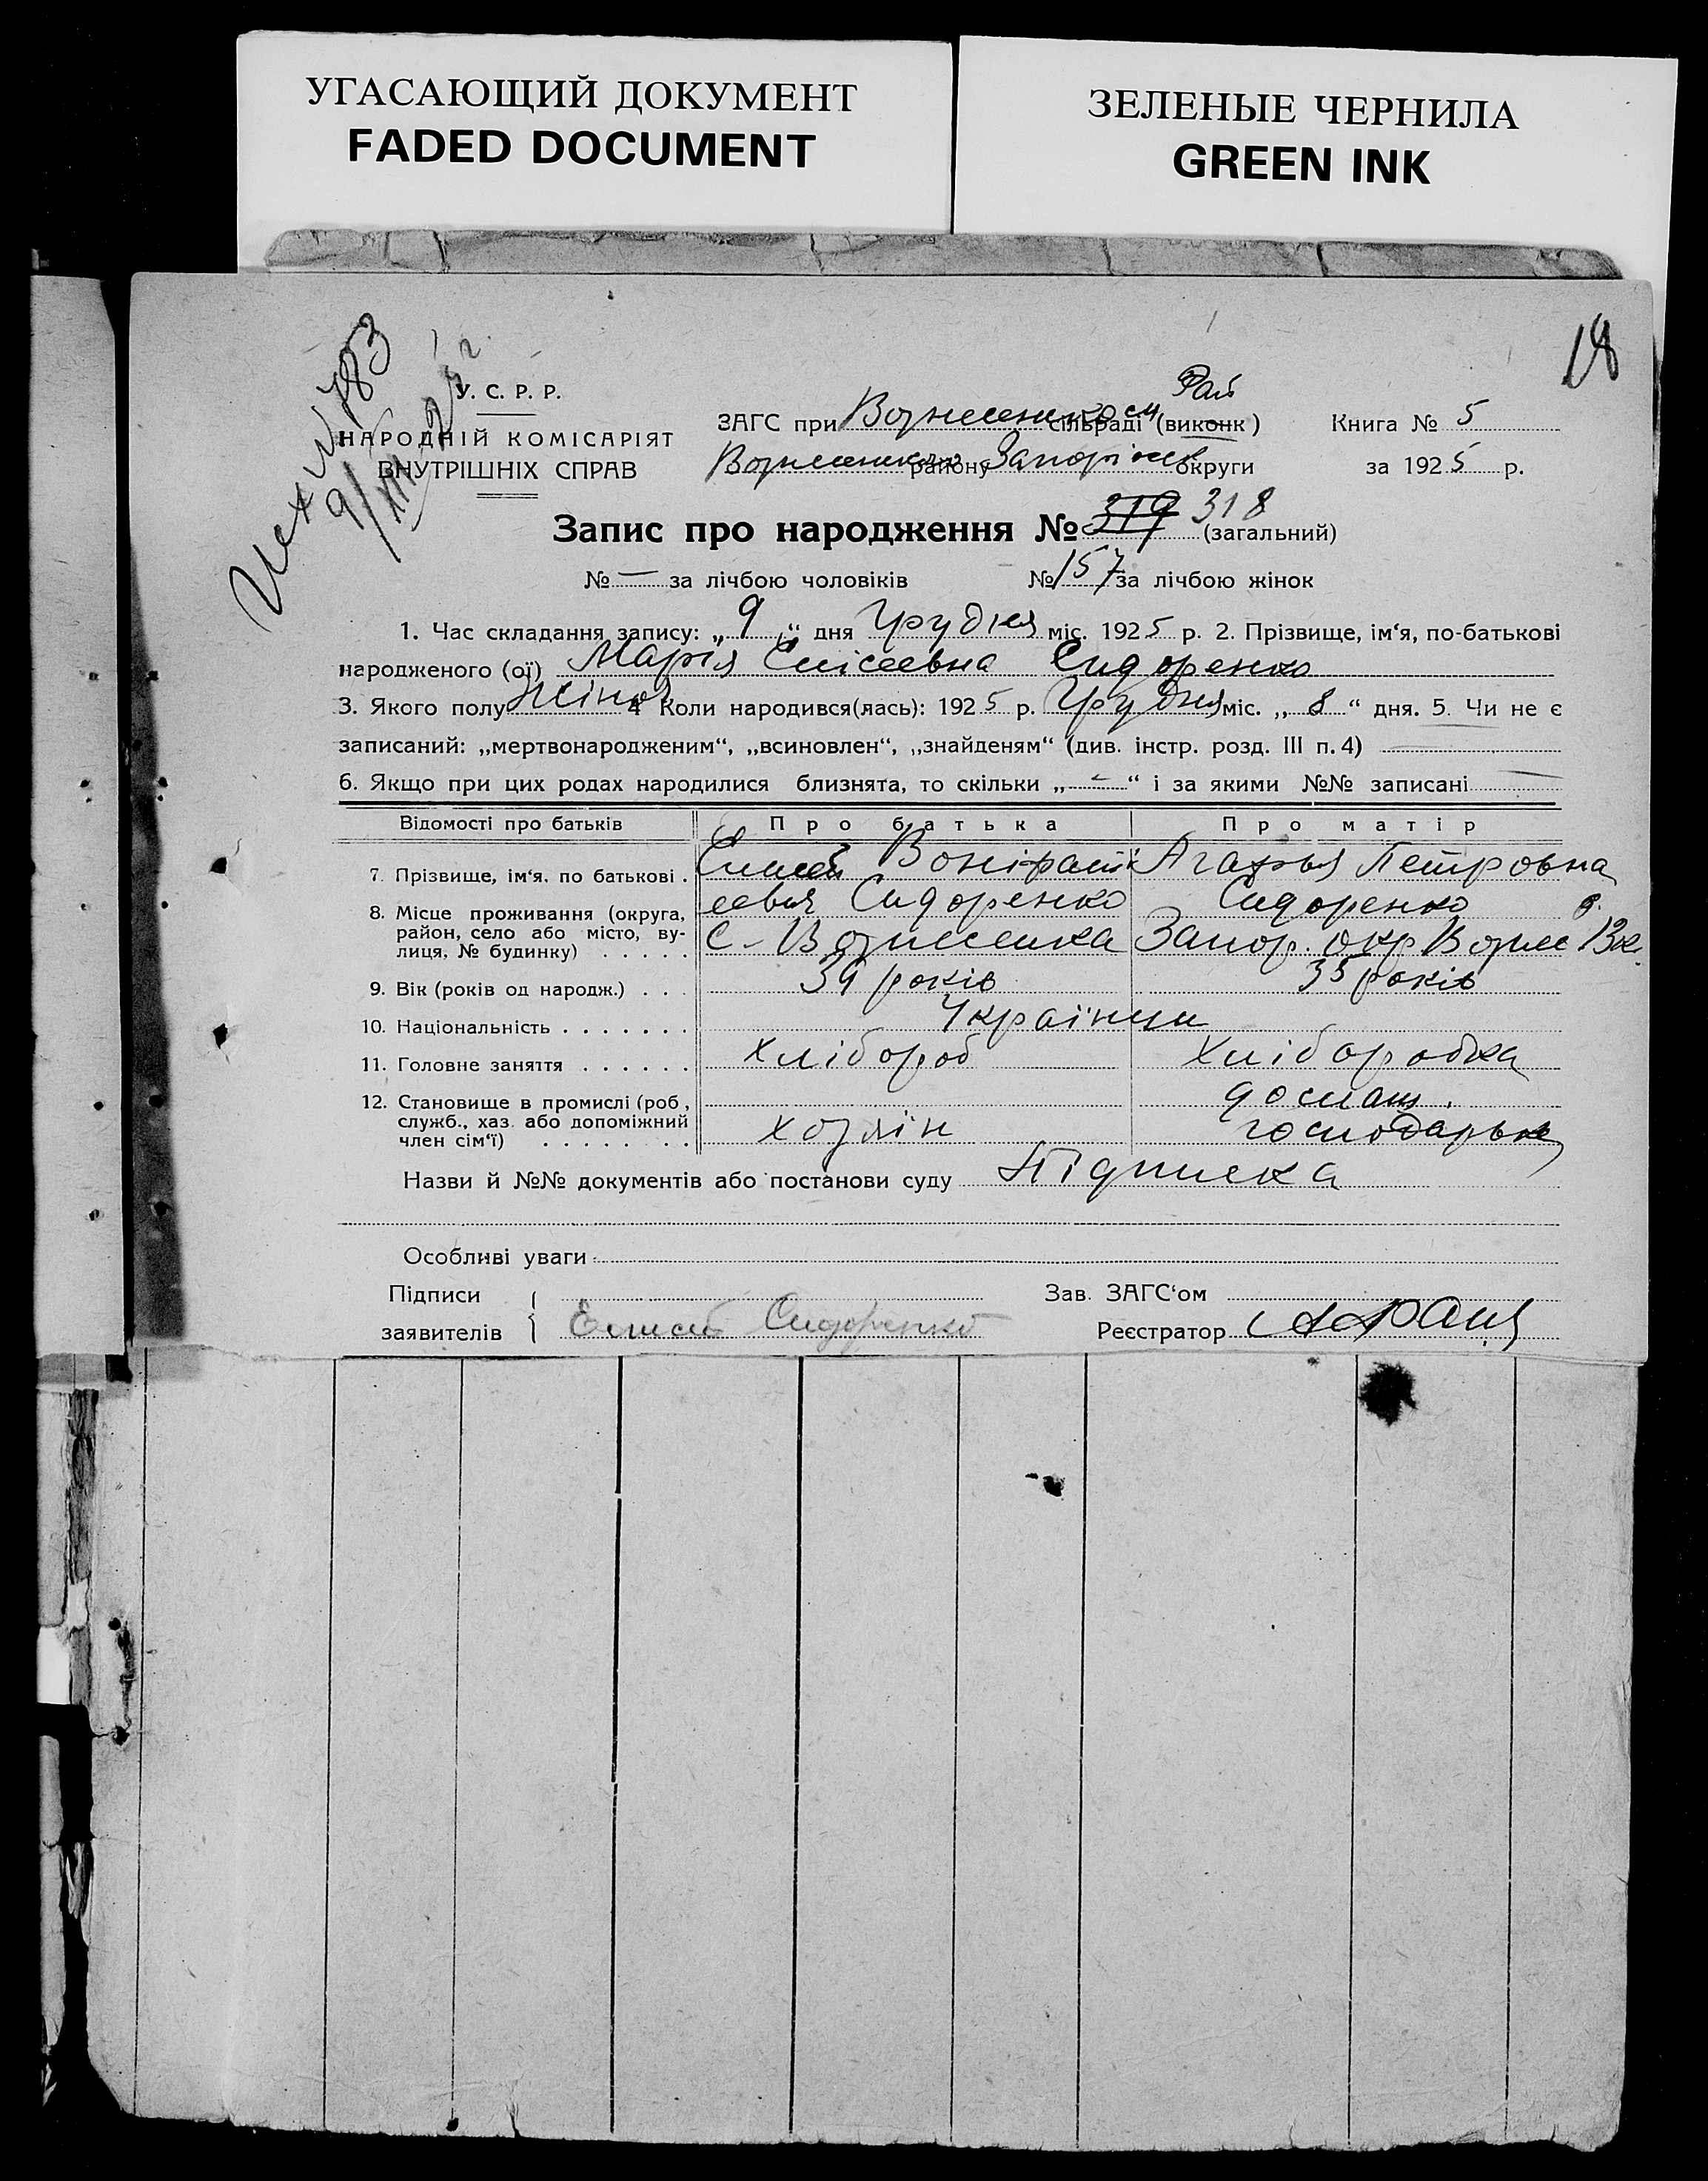 УГАСАЮЩИЙ ДОКУМЕНТ
FADED DOCUMENT
ЗЕЛЕНЫЕ ЧЕРНИЛА
GREEN INK
18
Исх № 783
9/XII 25 г.
У. С. Р. Р.
НАРОДНІЙ КОМІСАРІЯТ
ВНУТРІШНІХ СПРАВ
Рай
ЗАГС при Вознесенском сільраді (виконк) Книга № 5
Вознесенского району Запоріжск округи за 1925 р.
Запис про народження № 319 318 (загальний)
№ — за лічбою чоловіків № 157 за лічбою жінок
1. Час складання запису: „9“ дня Грудня міс. 1925 р. 2. Прізвище, ім‘я, по-батькові
народженого (ої) Марія Єлісеевна Сидоренко
3. Якого полу Жіноч 4 Коли народився(лась): 1925 р. Грудня міс. „8“ дня. 5. Чи не є
записаний: „мертвонародженим“, „всиновлен“, „знайденям“ (див. інстр. розд. III п. 4) —
6. Якщо при цих родах народилися близнята, то скільки „—“ і за якими №№ записані —
Відомості про батьків Про батька Про матір
7. Прізвище, ім‘я, по батькові . Єлисей Воніфати Агафья Петровна
еевич Сидоренко Сидоренко
8. Місце проживання (округа, район, село або місто, вулиця, № будинку) . . . . . с. Вознесенка Запор. окр Вознес
9. Вік (років од народж.) . . . 39 років 35 років
10. Національність . . . . . . . Українци
11. Головне заняття . . . . . . хлібороб Хліборобка
12. Становище в промислі (роб., служб., хаз. або допоміжний член сім‘ї) . . . . . . . хозяїн домаш. господарька
Назви й №№ документів або постанови суду Підписка
Особливі уваги
Підписи
заявителів Елисей Сидоренко
Зав. ЗАГС‘ом
Реєстратор